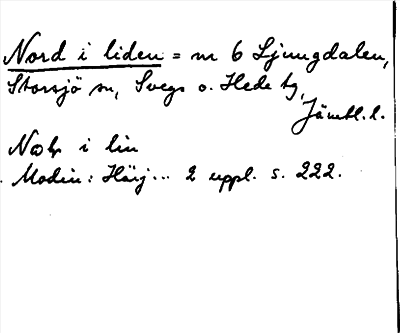 Nord i liden = m 6 Ljungdalen,
Storsjö sn, Svegs o. Hede tg,
Jämtl. l.
i lin
Modin: Härj... 2 uppl. s. 222.